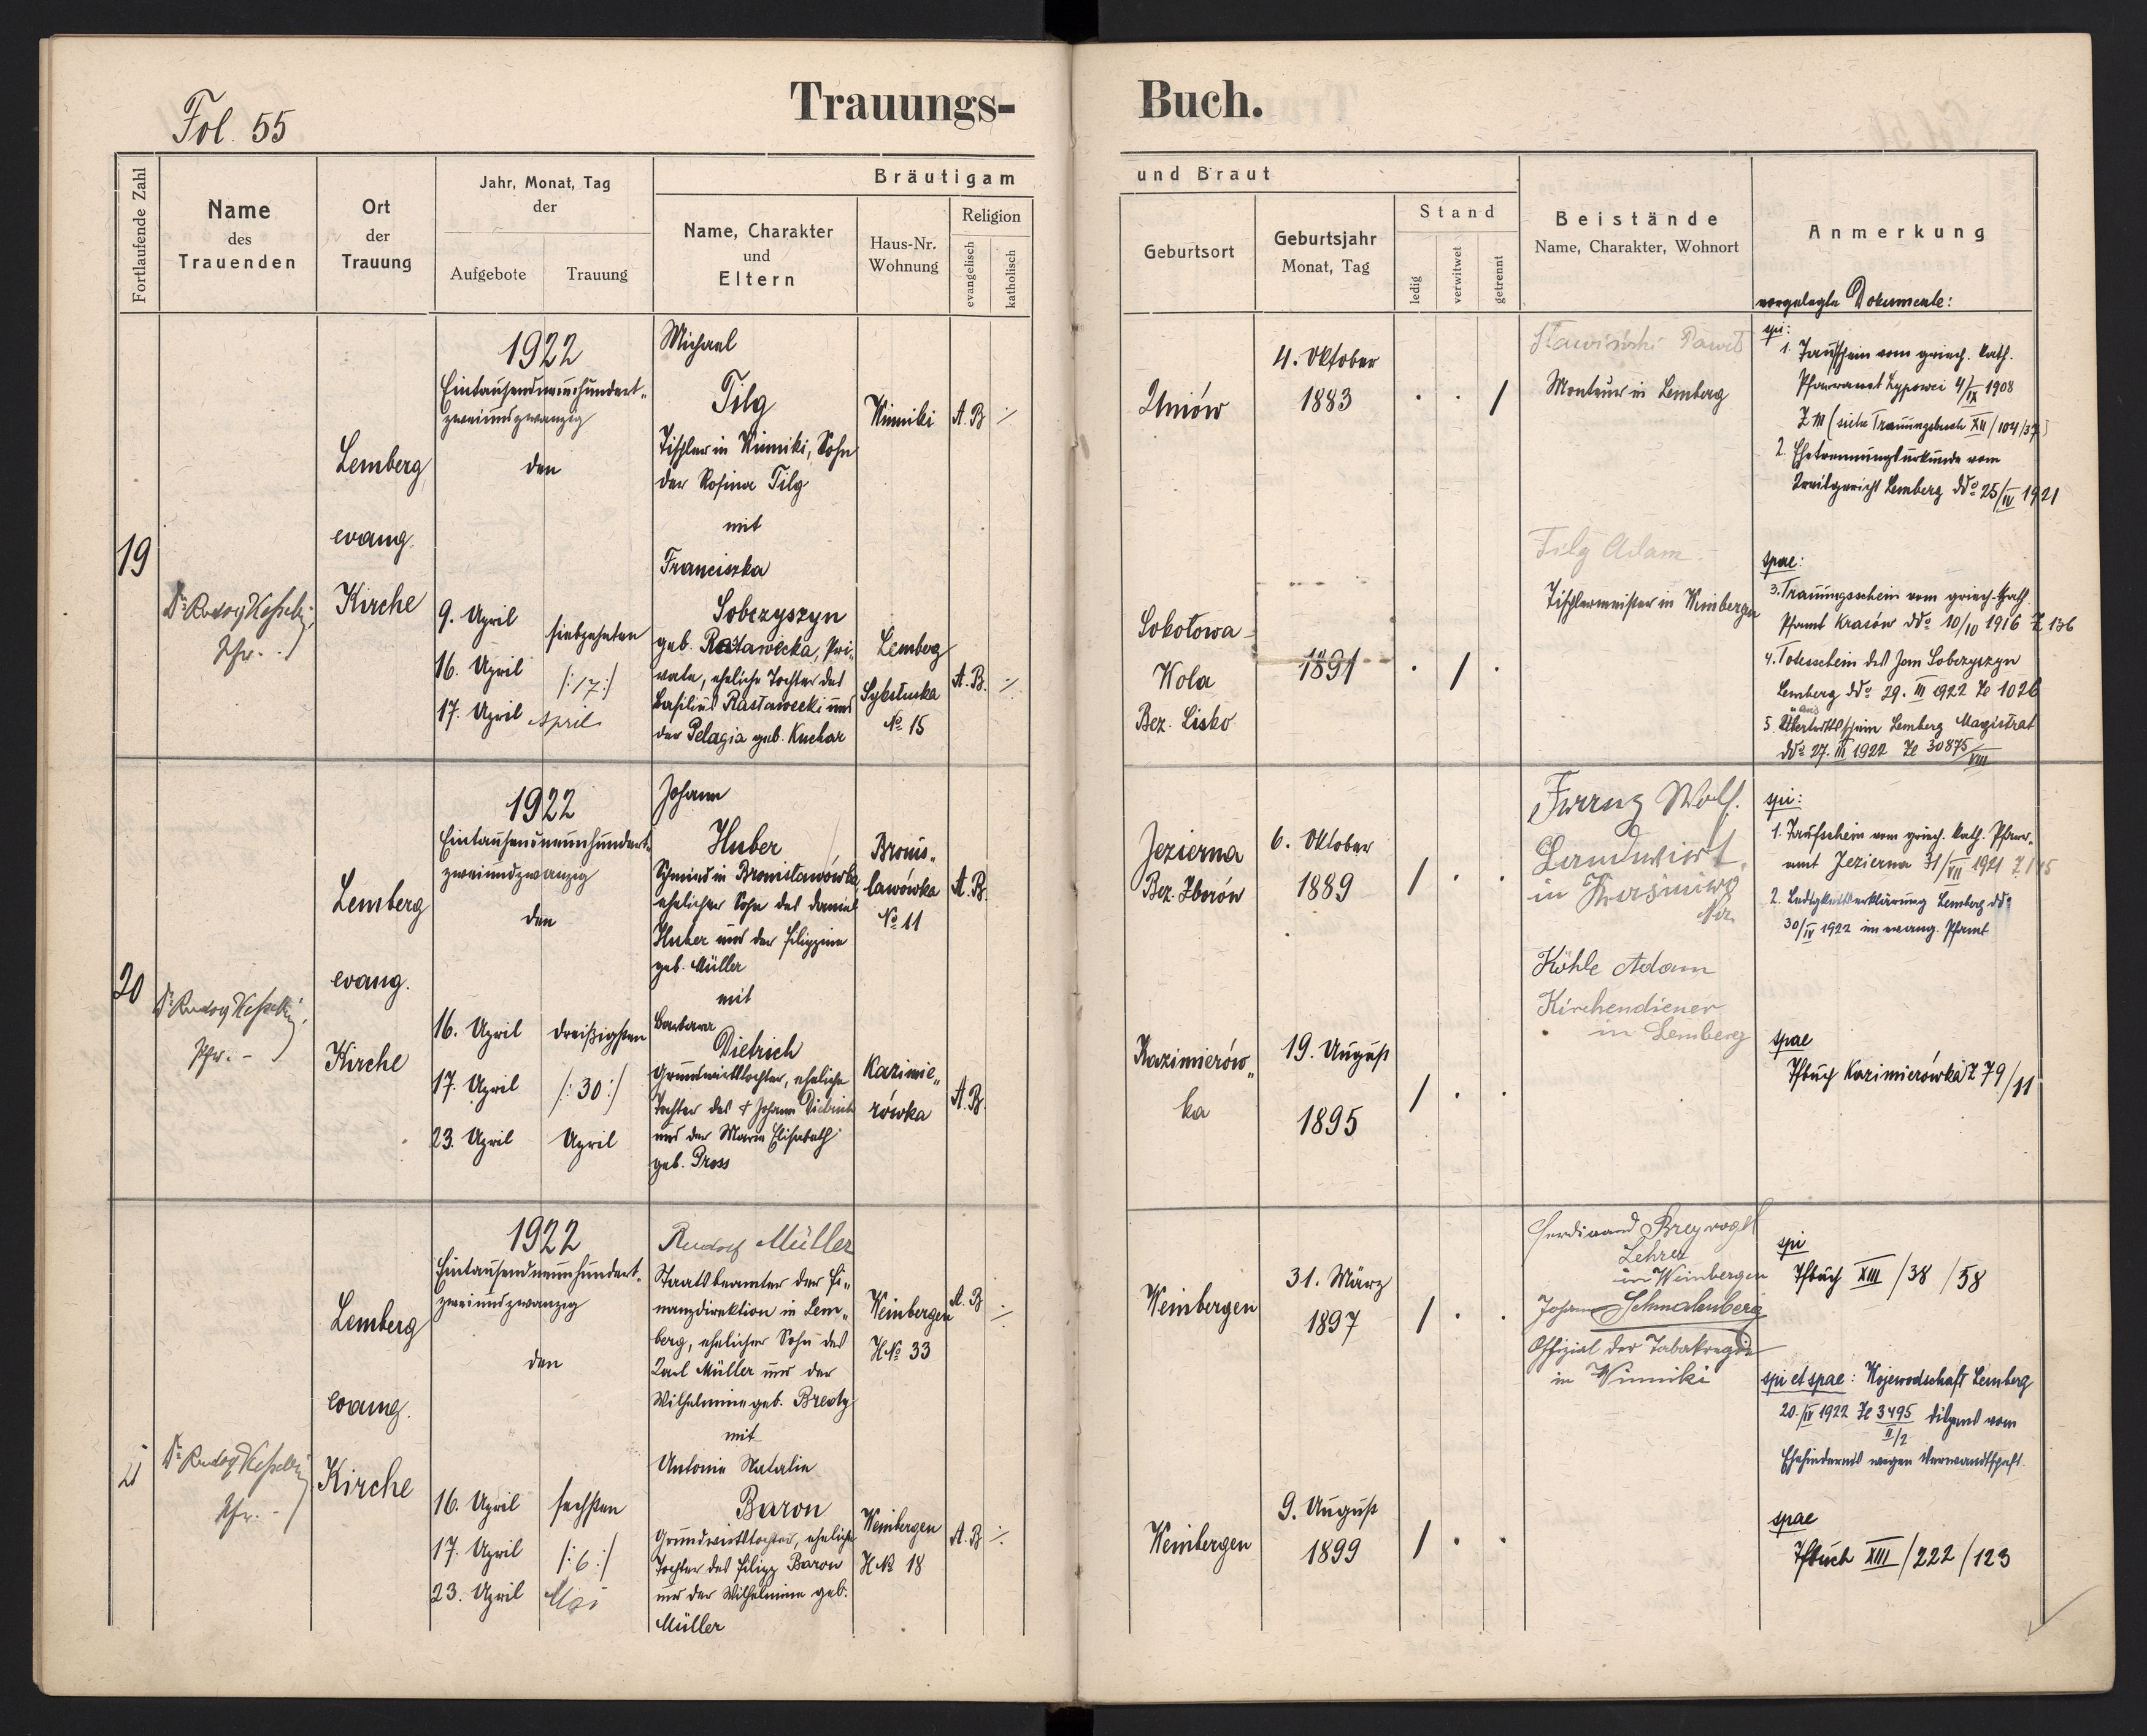 Fol. 55
Trauungs-
Buch.
Fortlaufende Zahl
Name
des
Trauenden
Ort
der
Trauung
Jahr, Monat, Tag
der
Aufgebote
Trauung
Bräutigam
Name, Charakter
und
Eltern
Haus-Nr.
Wohnung
Religion
evangelisch
katholisch
und Braut
Geburtsort
Geburtsjahr
Monat, Tag
Stand
ledig
verwitwet
getrennt
Beistände
Name, Charakter, Wohnort
Anmerkung
vorgelegte Dokumente:
19
Dr Rudolf Kesselring
Pfr.
Lemberg
evang.
Kirche
1922
Eintausendneunhundert-
zweiundzwanzig
den
9. April
16. April
17. April
siebzehnten
/:17:/
April
Michael
Tilg
Tischler in Winniki, Sohn
der Rosina Tilg
mit
Franciszka
Sobczyszyn
geb. Rastawiecka, Pri-
vate, eheliche Tochter des
Basilius Rastawiecki und
der Pelagia geb. Kuchar
Winniki
A.B
Lemberg
Sykstuska
No 15
A.B.
Uniów
4. Oktober
1883
Sokołowa-
Kola
Bez. Lisko
1891
Sławiński Paweł
Monteur in Lemberg
Tilg Adam
Tischlermeister in Weinbergen
spi:
1. Taufschein vom griech. kath.
Pfarramt 4/IX 1908
(siehe Trauungsbuch XII/104/37)
2. Ehetrennungsurkunde vom
Kreisgericht Lemberg ddo 25/IV 1921
spae:
3. Trauungsschein vom griech. kath.
Pfamt Krasów ddo 10/10 1916 Z 136
4. Totesschein des Jan Sobczyszyn
Lemberg ddo 29. III 1922 Ze 1026
5. Lemberg Magistrat
ddo 27. III 1922 Ze 30875/VIII
20
Dr Rudolf Kesselring
Pfr.
Lemberg
evang.
Kirche
1922
Eintausendneunhundert-
zweiundzwanzig
den
16. April
17. April
23. April
dreißigsten
/:30:/
April
Johann
Huber
Schmied in Bronisławówka
ehelicher Sohn des Daniel
Huber und der Filippine
geb. Müller
mit
Barbara
Dietrich
Grundwirtstochter, eheliche
Tochter des † Johann Dietrich
und der Maria Elisabeth
geb. Pross
Bronis-
ławówka
No 11
A.B.
Kazimie-
rówka
A.B.
Jezierna
Bez. Zborów
6. Oktober
1889
Kazimierów-
ka
19. August
1895
Franz Wolf.
Landwirt
in
Köhle Adam
Kirchendiener
in Lemberg
spi:
1. Taufschein vom griech. kath. Pfarr-
amt Jezierna 31/VII 1921 Z 145
2. Ledigkeitserklärung Lemberg ddo
30/IV 1922 im evang. Pfamt
spae
Tfbuch Kazimierówka Z 79/11
21
Dr Rudolf Kesselring
Pfr.
Lemberg
evang.
Kirche
1922
Eintausendneunhundert-
zweiundzwanzig
den
16. April
17. April
23. April
sechsten
/:6:/
Mai
Rudolf Müller
Staatsbeamter der Fi-
nanzdirektion in Lem-
berg, ehelicher Sohn des
Karl Müller und der
Wilhelmine geb. Bredy
mit
Antonie Natalie
Baron
Grundwirtstochter, eheliche
Tochter des Filipp Baron
und der Wilhelmine geb.
Müller
Weinbergen
HNo 33
A.B
Weinbergen
HNo 18
A.B
Weinbergen
31. März
1897
Weinbergen
9. August
1899
Ferdinand Breyvogel
Lehrer
in Weinbergen
Johann Schmalenberg
Offizial der Tabakregie
in Winniki
spi
Tfbuch XIII/38/58
spi et spae: Wojewodschaft Lemberg
20./IV 1922 Ze 3495 Dispens vom
II/2
Ehehindernis wegen Verwandtschaft.
spae
Tfbuch XIII/222/123